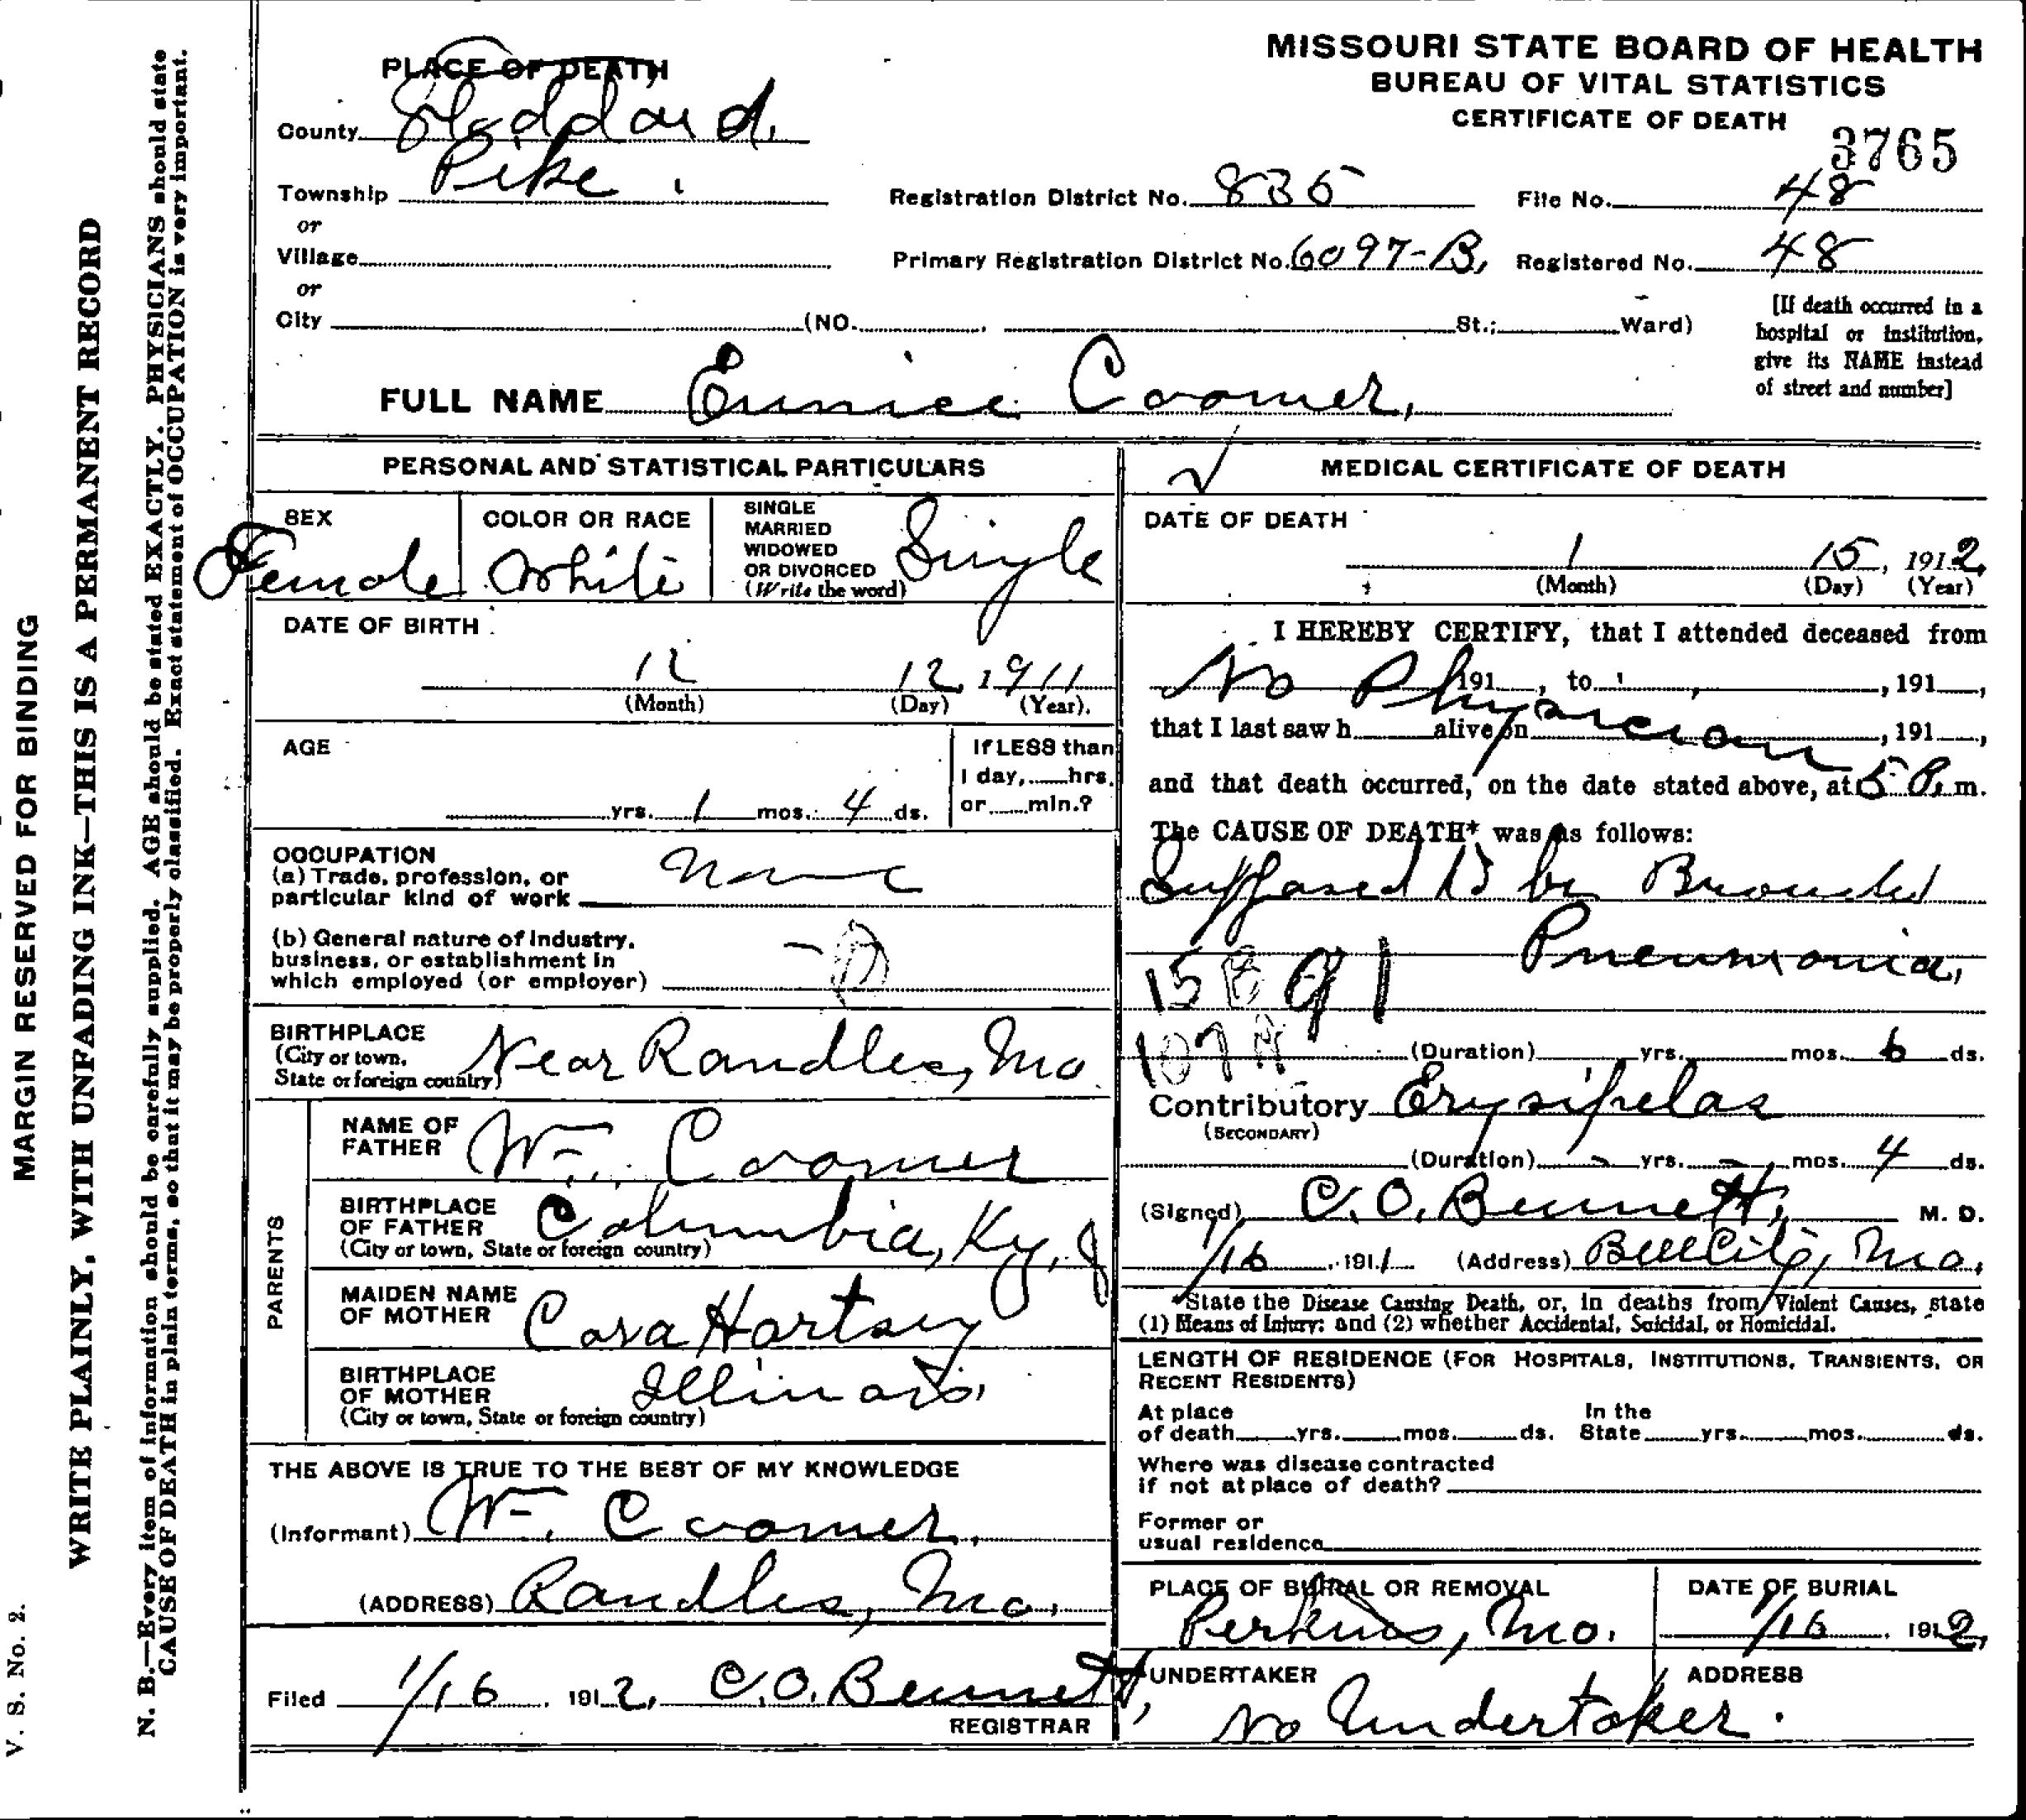 MARGIN RESERVED FOR BINDING
WRITE PLAINLY, WITH UNFADING INK—THIS IS A PERMANENT RECORD
N. B.—Every item of information should be carefully supplied. AGE should be stated EXACTLY. PHYSICIANS should state
CAUSE OF DEATH in plain terms, so that it may be properly classified. Exact statement of OCCUPATION is very important.
V. S. No. 2.
MISSOURI STATE BOARD OF HEALTH
BUREAU OF VITAL STATISTICS
CERTIFICATE OF DEATH
3765
PLACE OF DEATH
County Stoddard,
Township Pike.
or
Village
or
City (NO. St.; Ward)
Registration District No. 835 File No. 48
Primary Registration District No. 6097-B, Registered No. 48
[If death occurred in a
hospital or institution,
give its NAME instead
of street and number]
FULL NAME Eunice Coomer,
PERSONAL AND STATISTICAL PARTICULARS
SEX Female
COLOR OR RACE White
SINGLE
MARRIED
WIDOWED
OR DIVORCED
(Write the word) Single
DATE OF BIRTH
12 12, 1911
(Month) (Day) (Year).
AGE
yrs. 1 mos. 4 ds.
If LESS than
1 day, hrs.
or min.?
OCCUPATION
(a) Trade, profession, or
particular kind of work None
(b) General nature of Industry,
business, or establishment in
which employed (or employer)
BIRTHPLACE
(City or town,
State or foreign country) Near Randles, Mo.
PARENTS
NAME OF
FATHER Wm. Coomer
BIRTHPLACE
OF FATHER
(City or town, State or foreign country) Columbia, Ky,
MAIDEN NAME
OF MOTHER Cora Hartsey
BIRTHPLACE
OF MOTHER
(City or town, State or foreign country) Illinois,
THE ABOVE IS TRUE TO THE BEST OF MY KNOWLEDGE
(Informant) Wm. Coomer,
(ADDRESS) Randles, Mo.,
Filed 1/16, 1912, C. O. Bennett,
REGISTRAR
MEDICAL CERTIFICATE OF DEATH
DATE OF DEATH
1 15, 1912,
(Month) (Day) (Year)
I HEREBY CERTIFY, that I attended deceased from
No Physician 191 , to , 191 ,
that I last saw h alive on , 191 ,
and that death occurred, on the date stated above, at 5 P. m.
The CAUSE OF DEATH* was as follows:
Supposed to be Bronchial
Pneumonia,
15 91
107
(Duration) yrs. mos. 6 ds.
Contributory Erysipelas
(SECONDARY)
(Duration) - yrs. - mos. 4 ds.
(Signed) C. O. Bennett, M. D.
1/16, 1911 (Address) Bell City, Mo.
*State the Disease Causing Death, or, in deaths from Violent Causes, state
(1) Means of Injury; and (2) whether Accidental, Suicidal, or Homicidal.
LENGTH OF RESIDENCE (FOR HOSPITALS, INSTITUTIONS, TRANSIENTS, OR
RECENT RESIDENTS)
At place
of death yrs. mos. ds. In the
State yrs. mos. ds.
Where was disease contracted
if not at place of death?
Former or
usual residence
PLACE OF BURIAL OR REMOVAL
Perkins, Mo.
DATE OF BURIAL
1/16, 1912,
UNDERTAKER
No Undertaker.
ADDRESS